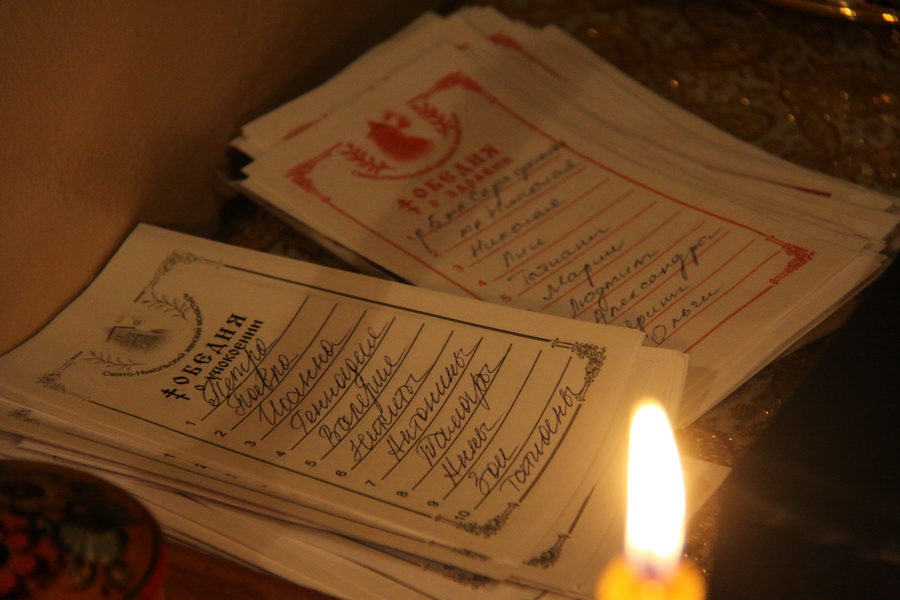 ОБЕДНЯ
О ЗДРАВИИ
Николая
Николая
Лии
Татианы
Марии
Людмилы
Александра
Ольги
3
5
Свято-Никольский
ОБЕДНЯ
О УПОКОЕНИИ
1 Петра
2 Павла
3 Иоанна
4 Геннадия
5 Валерия
6 Никиты
7 Антонины
8 Тамары
9 Нины
10 Зои
Татианы